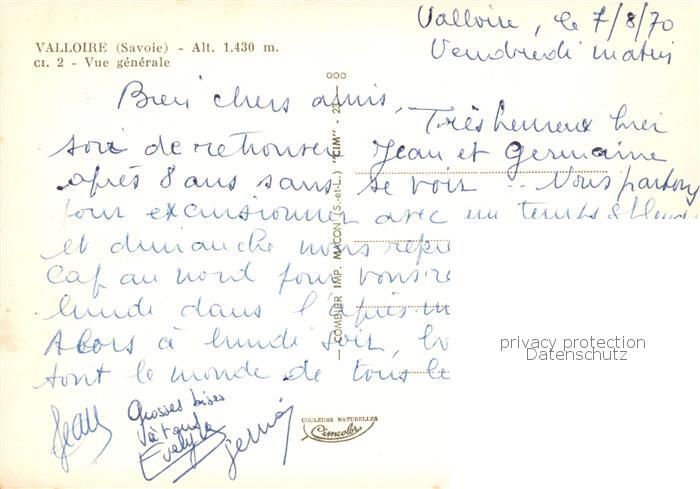 Valloire, le 7/8/70
Vendredi matin
VALLOIRE (Savoie) - Alt. 1.430 m.
CI. 2 - Vue générale
Bien chers amis,
Très heureux hier
soir de retrouver Jean et Germaine
après 8 ans sans se voir .. Nous partons
pour excursionner avec un temps
et dimanche nous
Cap au nord pour vous
lundi dans l'après-m
Alors à lundi soir,
tout le monde de tous
Jean
Grosses bises
à tous
Evelyne
COMBIER IMP. MACON (S.-et-L.) "CIM"
COULEURS NATURELLES
Cimcolor
privacy protection
Datenschutz